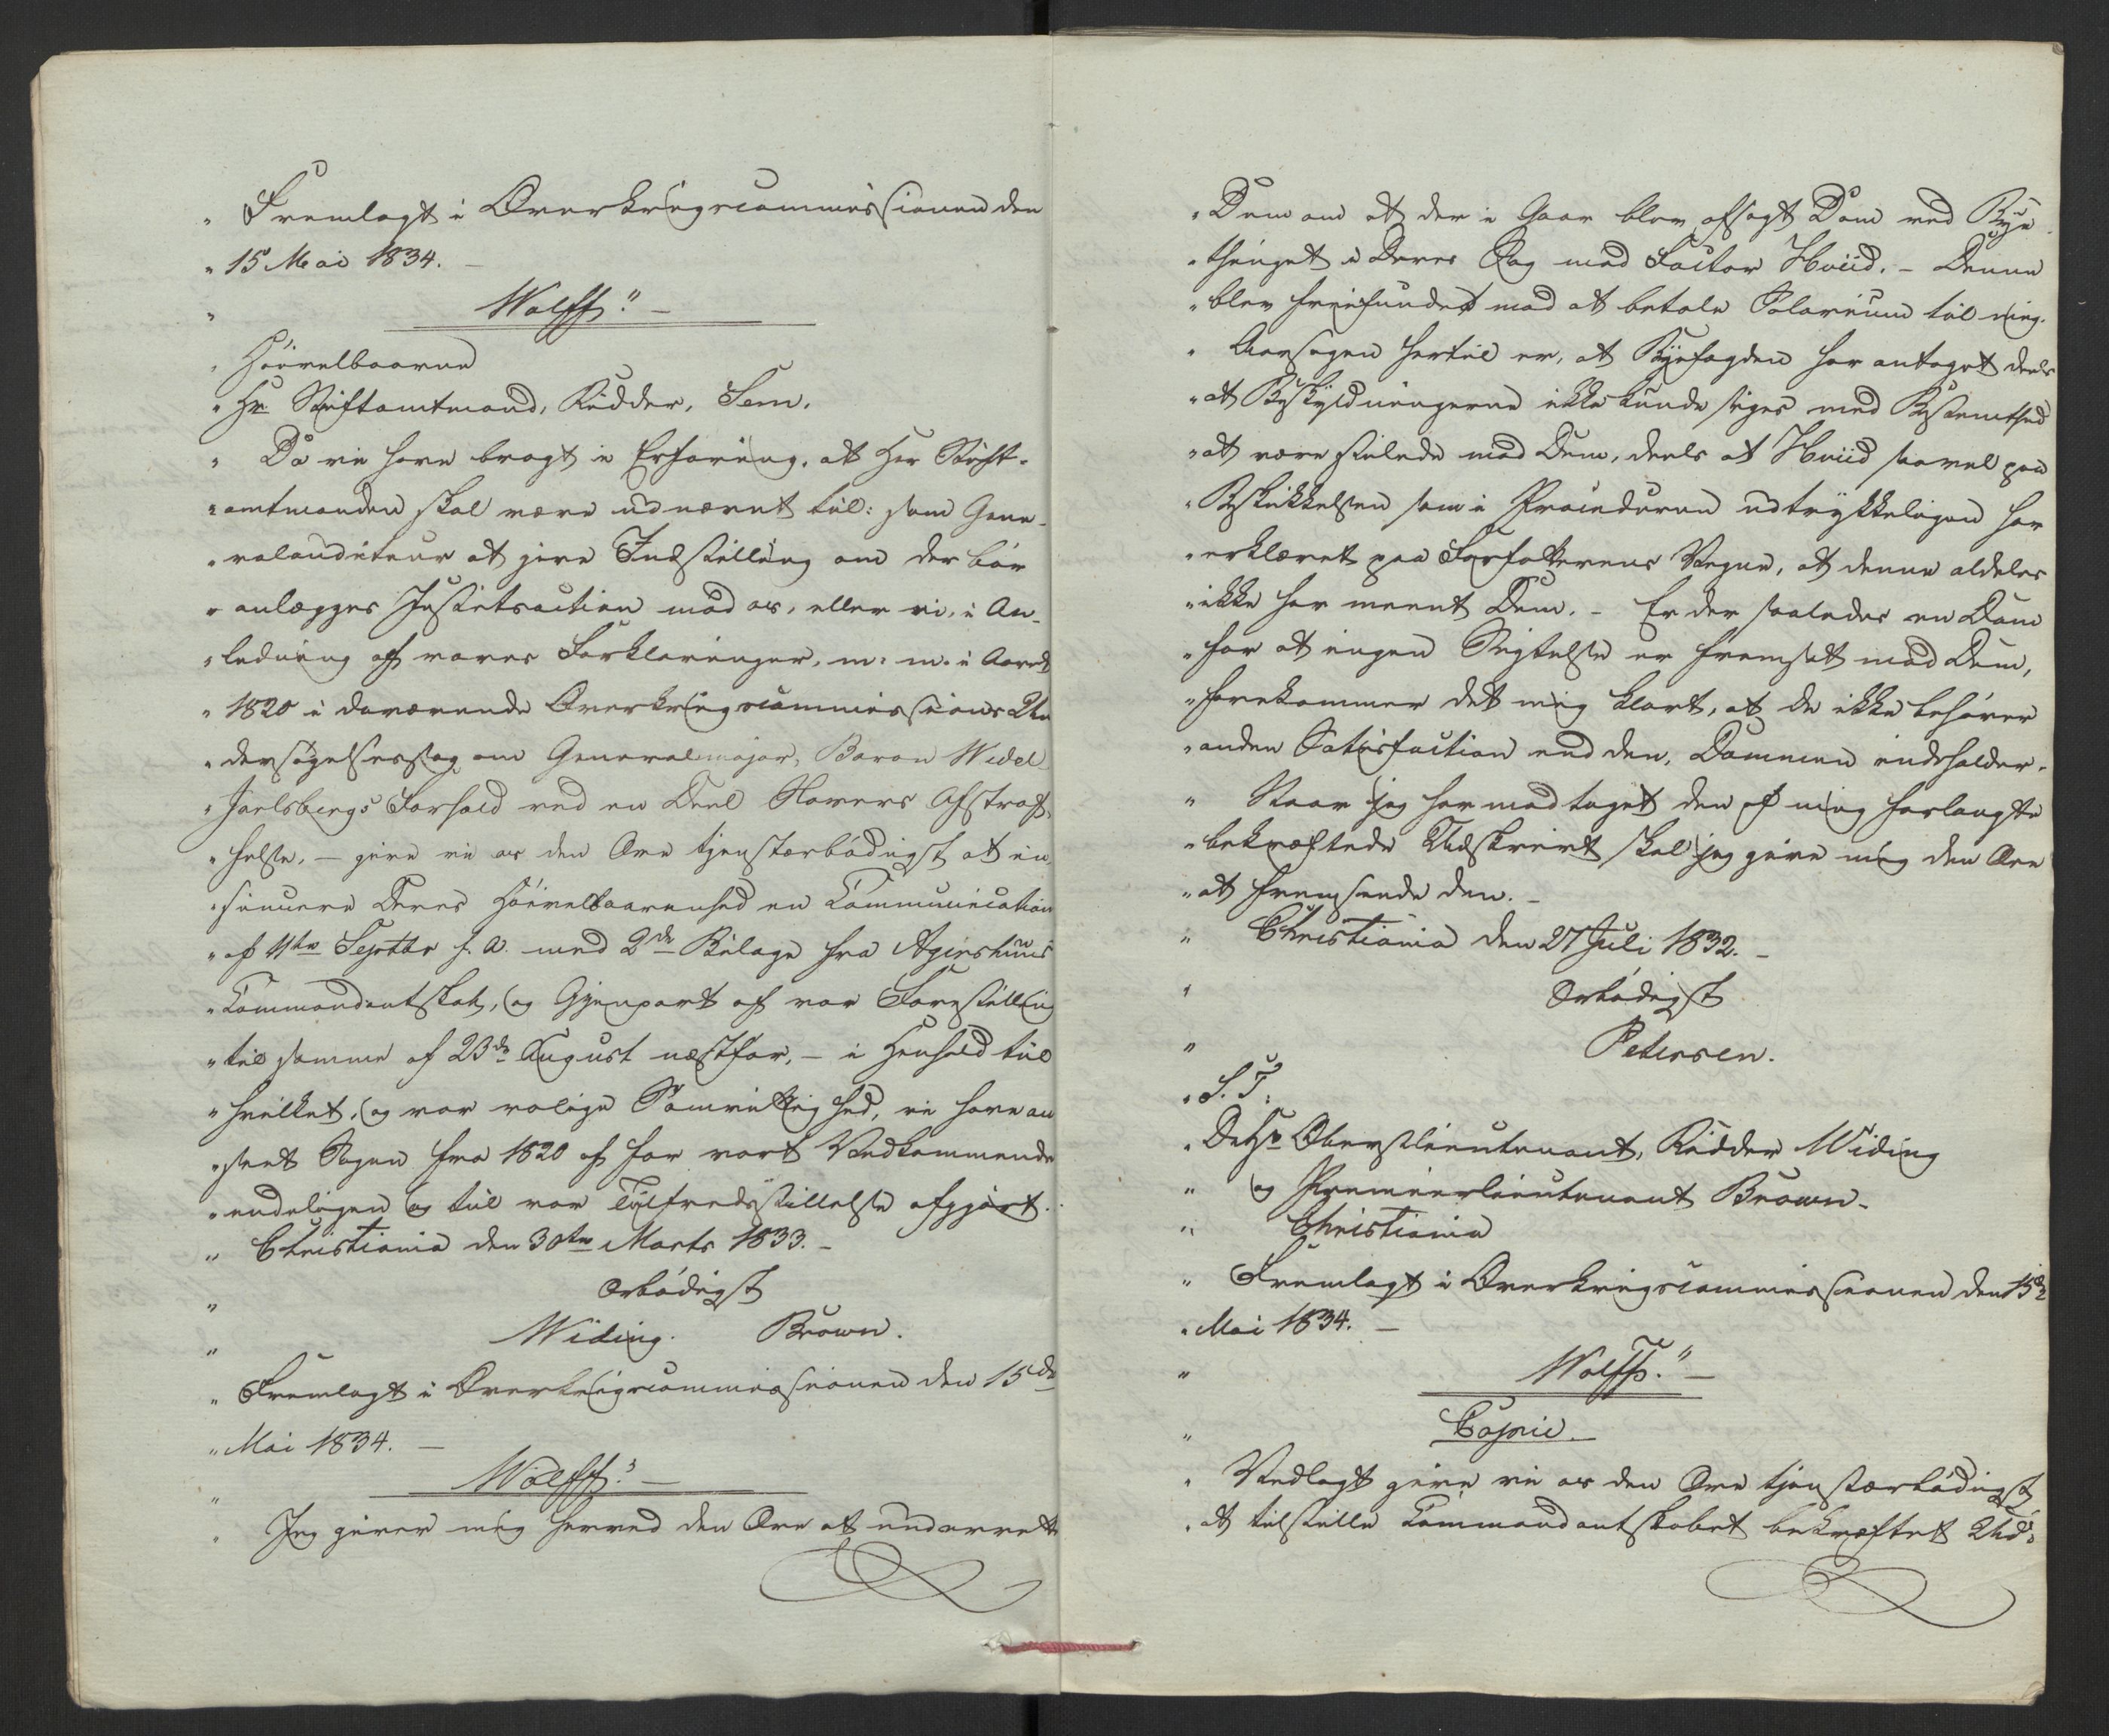 " Fremlagt i Overkrigscommissionen den
" 15 Mai 1834. –
" Wolff." –
" Høivelbaarne
" Hr Stiftamtmand, Ridder, Sem.
" Da vi have bragt i Erfaring, at Hr Stift-
" amtmanden skal være udnævnt til: som Gene-
" ralauditeur at give Indstilling om der bör
" anlægges Justitsaction mod os, eller vi, i An-
" ledning af vores Forklaringer, m: m: i Aaret
" 1820 i daværende Overkrigscommissions Un
" dersøgelsessag om Generalmajor, Baron Wedel
" Jarlsbergs Forhold ved en Deel Slavers Afstraf-
" felse, – give vi os den Ære tjenstærbödigst at in
" sinuere Deres Höivelbaarenhed en Communication
" af 11te Septbr f. A. med 2de Bilage fra Agershuus
" Commandantskab, og Gjenpart af vor Forestilling
" til samme af 23de August næstfor, – i Henhold til
" hvilket, og vor rolige Samvittighed, vi have an
" seet Sagen fra 1820 af for vort Vedkommende
" endeligen og til vor Tilfredsstillelse afgjort.
" Christiania den 30te Marts 1833. –
" ærbödigst
" Widing. Brown.
" Fremlagt i Overkrigscommissionen den 15de
" Mai 1834. –
" Wolff." –
" Jeg giver mig herved den Ære at underrette
" Dem om at der i Gaar blev afsagt Dom ved Bye
" thinget i Deres Sag mod Factor Hviid. – Denne
" blev friefundet mod at betale Salarium til mig.
" Aarsagen hertil er, at Byefogden har antaget deels
" at Beskyldningerne ikke kunde siges med Bestemthed
" at være stilede mod Dem, deels at Hviid saavel paa
" Beskikkelsen som i Proceduren udtrykkeligen har
" erklæret paa Forfatterens Vegne, at denne aldeles
" ikke har meent Dem. – Er der saaledes en Dom
" for at ingen Sigtelse er fremsat mod Dem,
" forekommer det mig klart, at De ikke behøver
" anden Satisfaction end den, Dommen indeholder.
" Naar jeg har modtaget den af mig forlangte
" bekræftede Udskrivt skal jeg give mig den Ære
" at fremsende den. –
" Christiania den 27 Juli 1832. –
" Ærbödigst
" Petersen.
" S. T.
" DHr Oberstlieutenant, Ridder Widing
" og Premierlieutenant Brown –
" Christiania
" Fremlagt i Overkrigscommissionen den 15de
" Mai 1834. –
" Wolff." –
" Copie. –
" Vedlagt give vi os den Ære tjenstærbödigst
" at tilstille Commandantskabet bekræftet Ud-